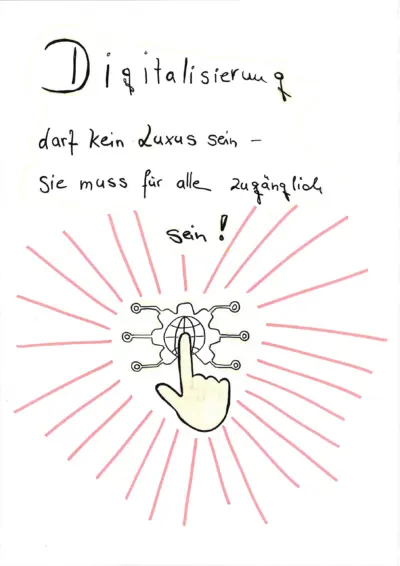 Digitalisierung
darf kein Luxus sein –
Sie muss für alle zugänglich
sein!